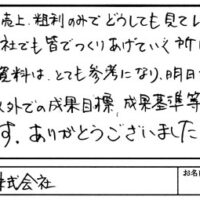 売上、粗利のみでどうしても見てし
社でも皆でつくりあげていく所
資料は、とても参考になり、明日
以外での成果目標、成果基準等
す。ありがとうございました
株式会社
お名